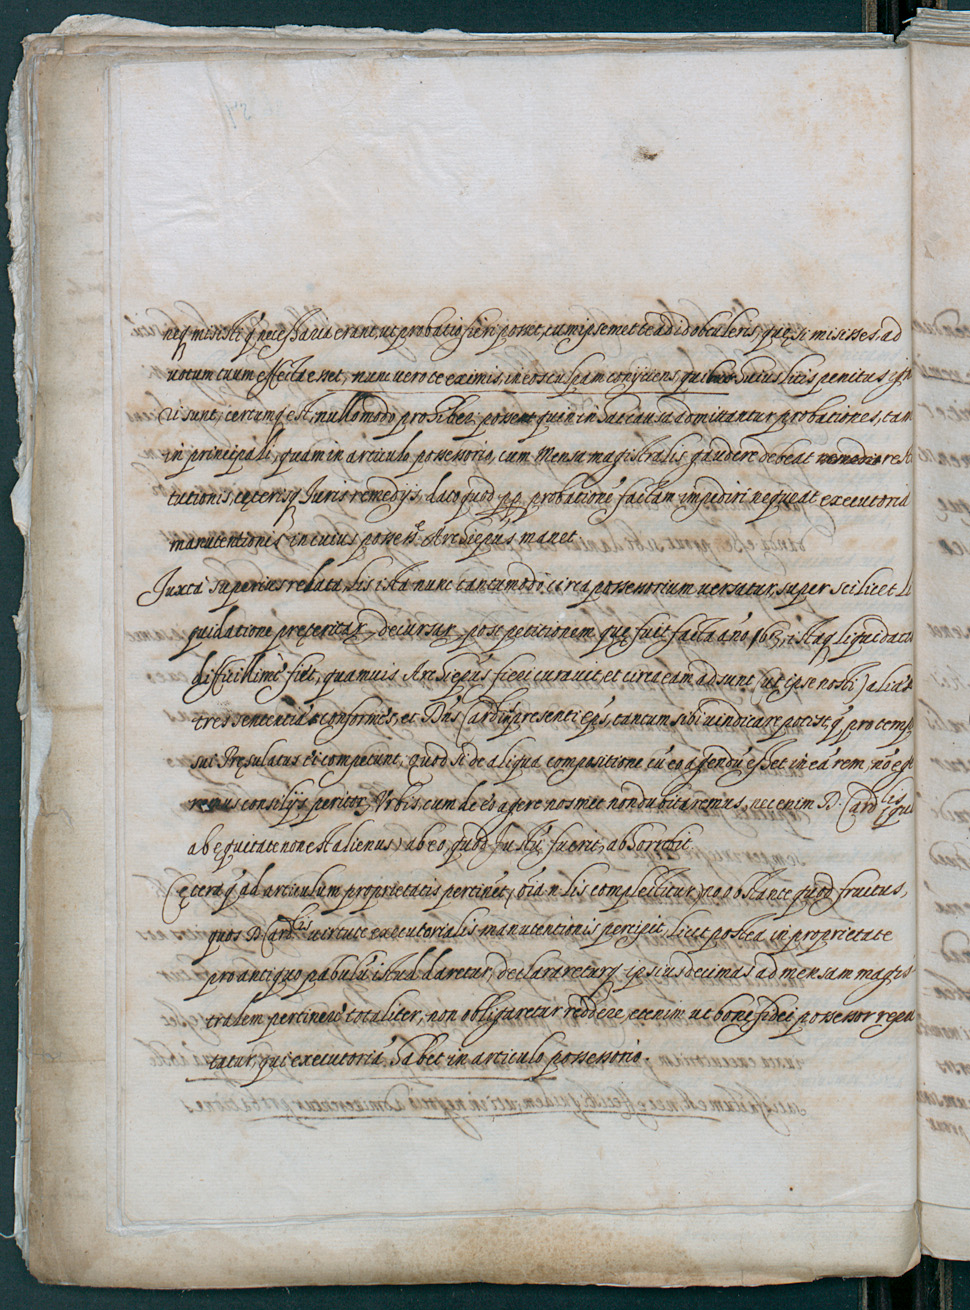 neq misisti q̃ necessaria erant, ut probatio fieri posset, cum ipsemet te ad id obtuleris, quę si misisses, ad
uotum tuum effecta esset, num uero te eximis, in eos culpam conijciens quibus huius litis penitus
ui sunt, certumq est, nullo modo prohiberi posse quin in hac causa admittantur probationes, tam
in principali, quam in articulo possessorio, cum Mensa magistralis gaudere debeat remedio resti
tutionis, ceterisq Iuris remedijs, dato quod pp. probationẽ factam impediri nequeat executoria
manutentionis in cuius possess.e Archiepus manet.
Juxta superius relata, lis ista nunc tantummodo circa possessorium uersatur, super scilicet li
quidatione preteritar, decursar, post petitionem quę fuit facta año 1613, istaq liquidatio
difficillimè fiet, quamuis Archiepũs fieri curauit, et circa eam adsunt (ut ipse nosti) alia
tres sententiæ conformes, et Dñs Cardlis presenti epũs, tantum sibi uindicare potest, q̃ pro temp
sui Pręsulatus ei competunt, Quod si de aliqua compositione cũ eo agendũ esset in eã rem, nõ
consilijs peritor Urbis, cum de eo agere nosmet non dubitaremus, nec enim D. Cardlis
ab equitate non est alienus) ab eo, quod iustũ fuerit, abhorrebit
Cętera q̃ ad articulum proprietatis pertinẽt, oĩa in lis complectitur, no obstante quod fructus,
quos D. Cardlis uirtute executorialis manutentionis percipit, licet postea in proprietate
pro antiquo pabulũ istud daretur, declarareturq ipsius decimas ad mensam magis
tralem pertinere totaliter, non obligaretur reddere, etenim ut bonę fidei possessor repu
tatur, qui executoriã habet in articulo possessorio.